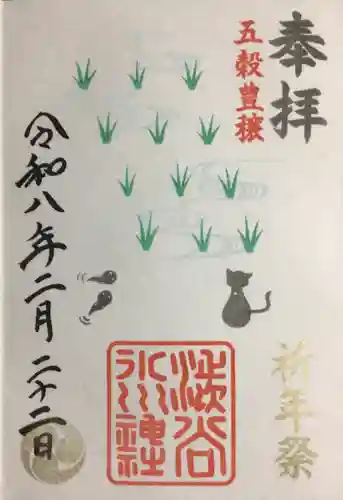 奉拝
五穀豊穣
祈年祭
澁谷
氷川神社
令和八年二月二十二日